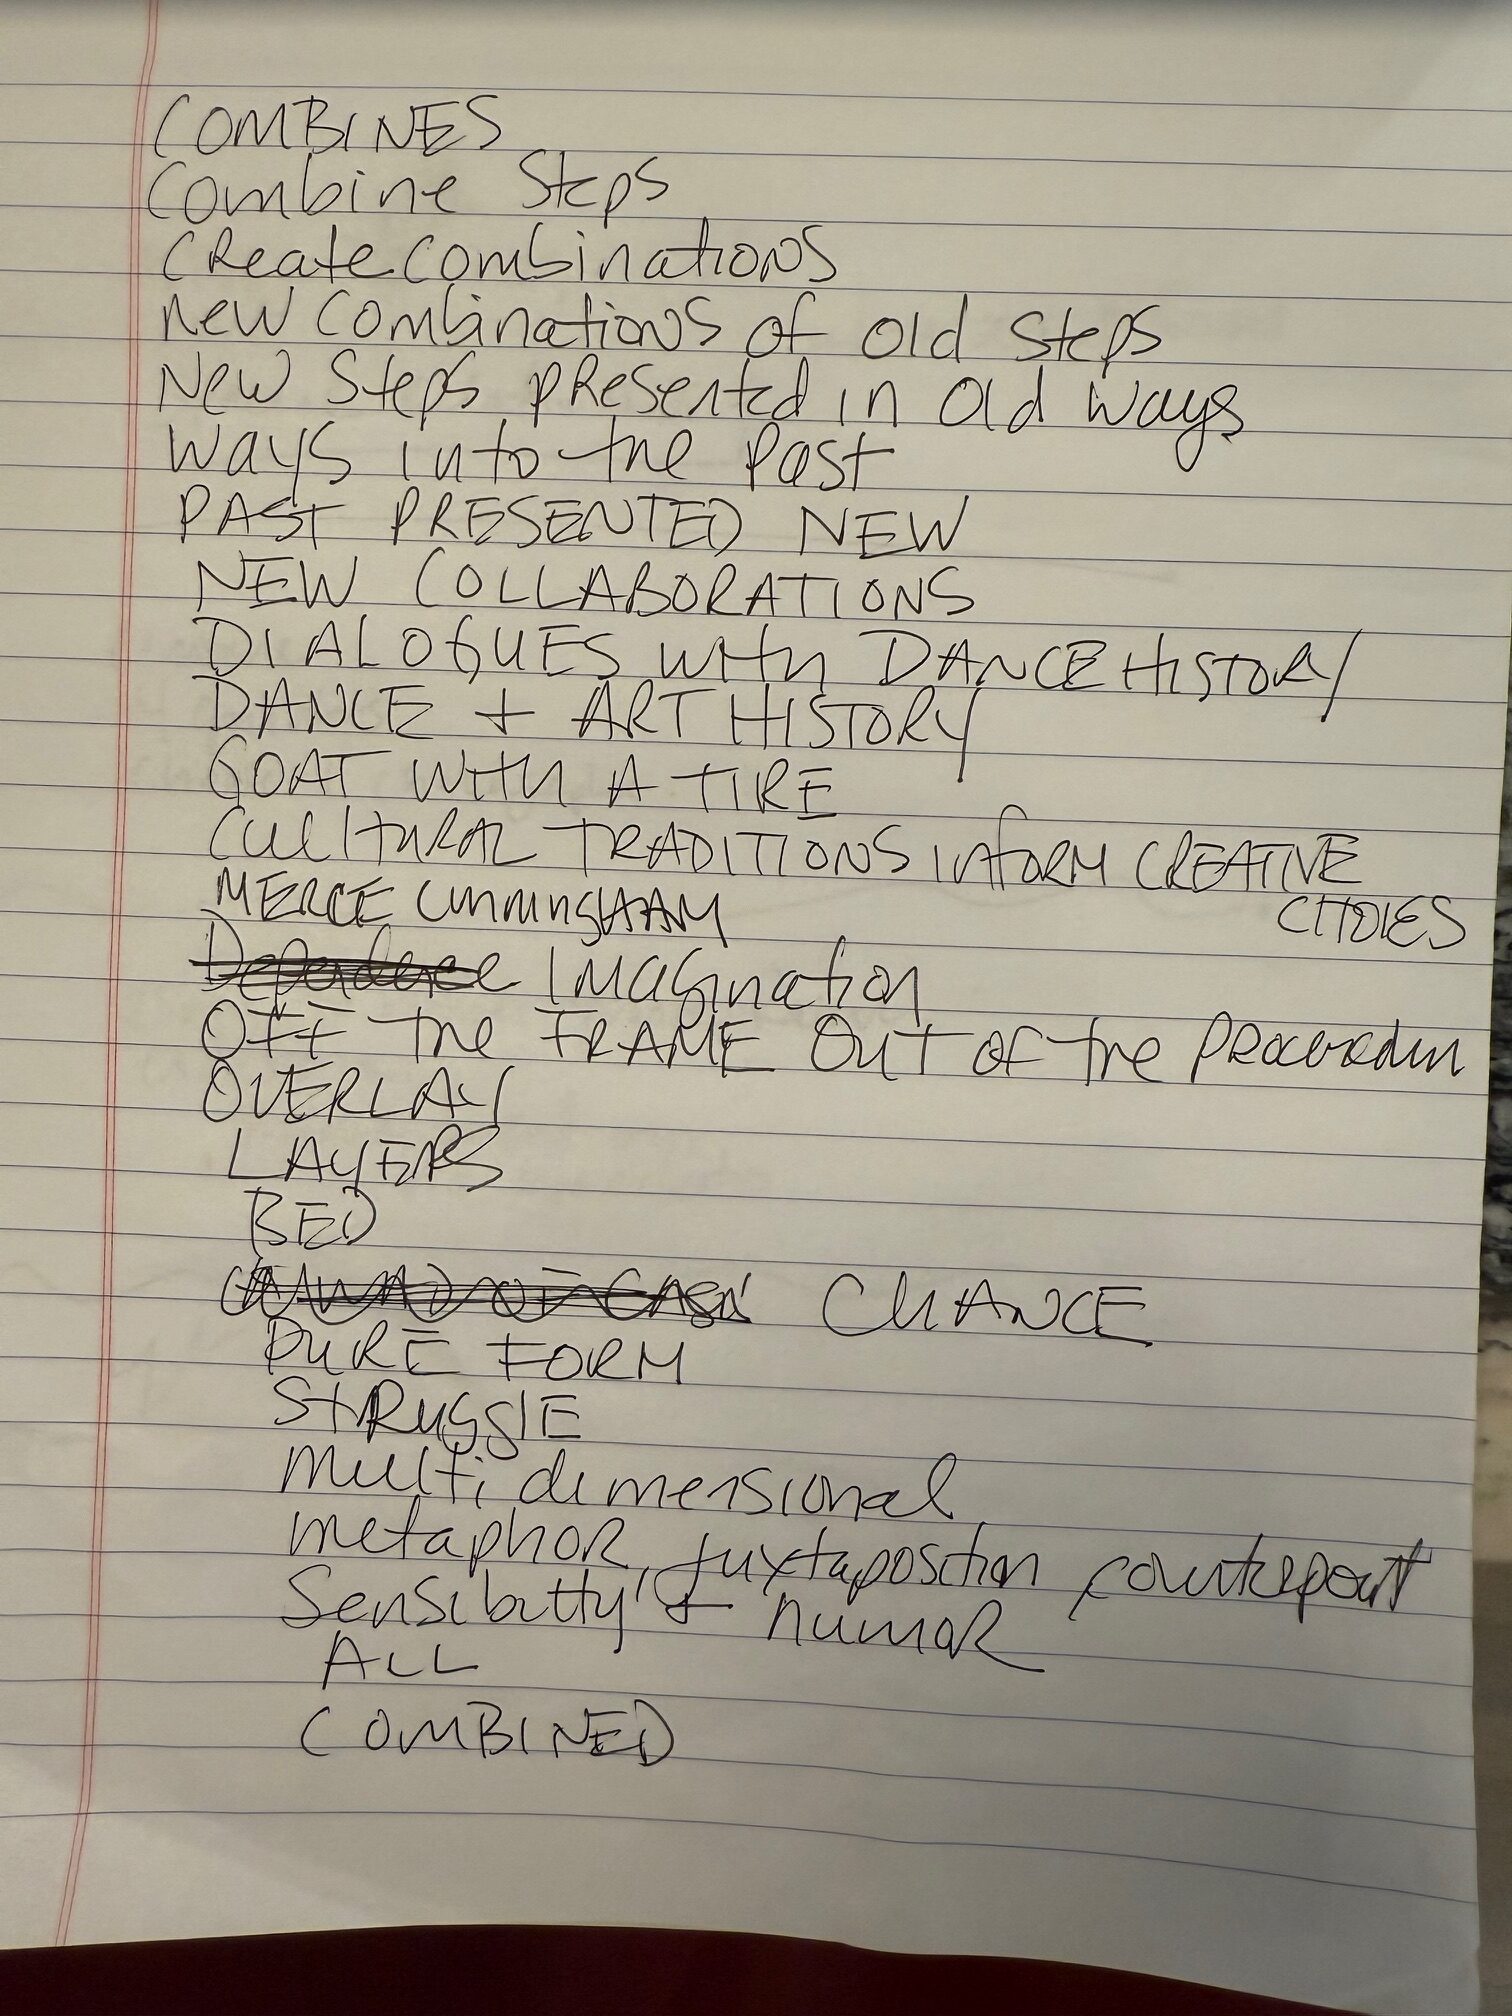 COMBINES
Combine Steps
Create Combinations
New Combinations of Old Steps
New Steps presented in Old Ways
Ways into the Past
PAST PRESENTED NEW
NEW COLLABORATIONS
DIALOGUES WITH DANCE HISTORY
DANCE + ART HISTORY
GOAT WITH A TIRE
CULTURAL TRADITIONS INFORM CREATIVE
CHOICES
MERCE CUNNINGHAM
Dependence Imagination
OFF the FRAME OUT OF the
OVERLAY
LAYERS
BED
CHANCE
PURE FORM
STRUGGLE
Multi dimensional
metaphor, juxtaposition, counterpoint
Sensibility + humor
ALL
COMBINED